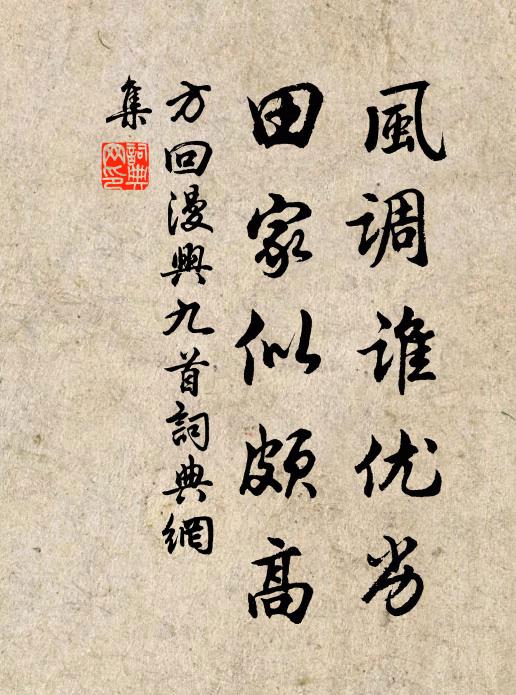 風調誰优劣
田家似頗高
方回漫興九首詞典網
集
詞典网印